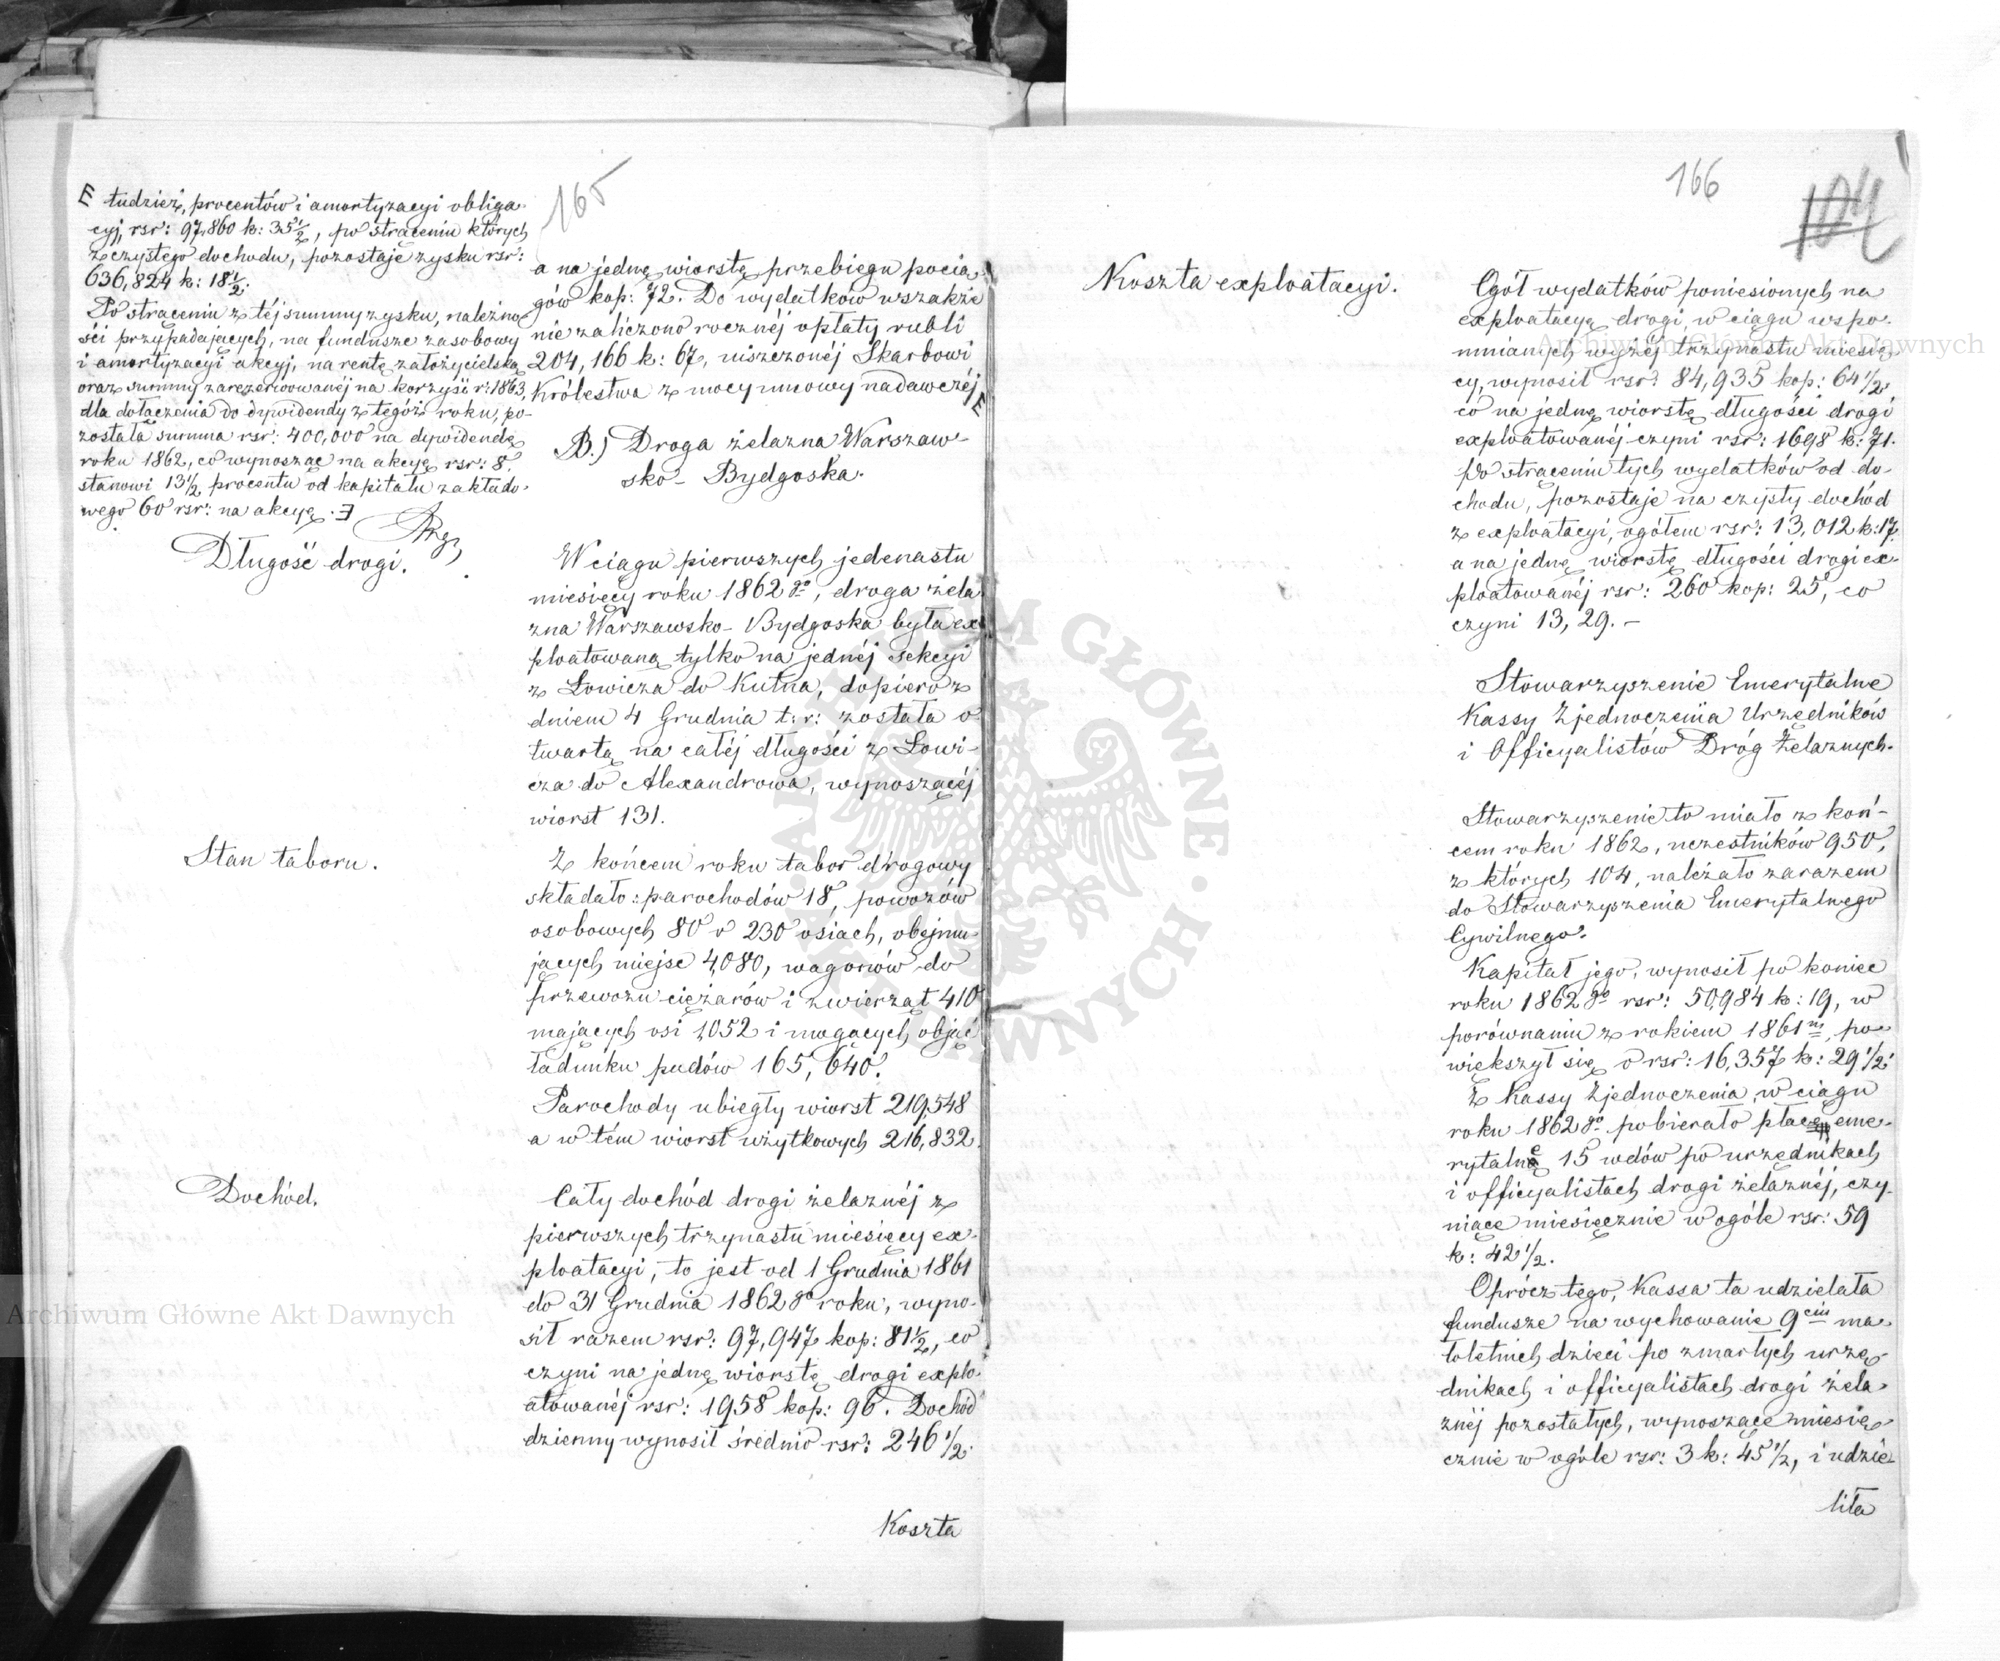 165
E tudzież, procentów i amortyzacyi obliga-
cyj, rsr: 97,860 k: 35½, po strąceniu których
z czystego dochodu, pozostaje zysku rsr:
636,824 k: 18½.
Po strąceniu z téj summy zysku, należno-
ści przypadających, na fundusze zasobowy
i amortyzacyi akcyj, na rentę założycielską
oraz summy zarezerwowanéj na korzyść r: 1863,
dla dołączenia do dywidendy z tegóż roku, po-
została summa rsr: 400,000 na dywidendę
roku 1862, co wynosząc na akcyę rsr: 8,
stanowi 13½ procentu od kapitału zakłado-
wego 60 rsr: na akcyę. E
a na jednę wiorstę przebiegu pocią-
gów kop: 72. Do wydatków wszakże
nie zaliczono rocznéj opłaty rubli
204,166 k: 67, uiszczonéj Skarbowi
Królestwa z mocy umowy nadawczéj E
B.) Droga żelazna Warszaw-
sko-Bydgoska.
Długość drogi.
W ciągu pierwszych jedenastu
miesięcy roku 1862 go, droga żela
zna Warszawsko-Bydgoska była ex
ploatowaną tylko na jednéj sekcyi
z Łowicza do Kutna, dopiero z
dniem 4 Grudnia t: r: została o
twartą na całéj długości z Łowi-
cza do Alexandrowa, wynoszącéj
wiorst 131.
Stan taboru.
Z końcem roku tabor drogowy
składało: parochodów 18, powozów
osobowych 80 o 230 osiach, obejmu-
jących miejsc 4,080, wagonów do
przewozu ciężarów i zwierząt 410
mających osi 1,052 i mogących objąć
ładunku pudów 165,640.
Parochody ubiegły wiorst 219,548
a w tém wiorst użytkowych 216,832.
Dochód.
Cały dochód drogi żelaznéj z
pierwszych trzynastu miesięcy ex-
ploatacyi, to jest od 1 Grudnia 1861
do 31 Grudnia 1862 go roku, wyno-
sił razem rsr: 97,947 kop: 81½, co
czyni na jednę wiorstę drogi explo-
atowanéj rsr: 1958 kop: 96. Dochód
dzienny wynosił średnio rsr: 246 ½.
Koszta
166
104
Koszta exploatacyi.
Ogół wydatków poniesionych na
exploatacyą drogi, w ciągu wspo-
mnianych wyżéj trzynastu miesię-
cy, wynosił rsr: 84,935 kop: 64½,
co na jednę wiorstę długości drogi
exploatowanéj czyni rsr: 1698 k: 71.
Po strąceniu tych wydatków od do-
chodu, pozostaje na czysty dochód
z exploatacyi, ogółem rsr: 13,012 k: 17,
a na jednę wiorstę długości drogi ex-
ploatowanéj rsr: 260 kop: 25, co
czyni 13,29. –
Stowarzyszenie Emerytalne
Kassy Zjednoczenia Urzędników
i Officyalistów Dróg Żelaznych.
Stowarzyszenie to miało z koń-
cem roku 1862, uczestników 950,
z których 104, należało zarazem
do Stowarzyszenia Emerytalnego
Cywilnego.
Kapitał jego, wynosił po koniec
roku 1862 go rsr: 50,984 k: 19, w
porównaniu z rokiem 1861 m, po-
większył się o rsr: 16,357 k: 29½.
Z Kassy Zjednoczenia, w ciągu
roku 1862 go pobierało płacę eme-
rytalne 15 wdów po urzędnikach
i officyalistach drogi żelaznéj, czy-
niące miesięcznie w ogóle rsr: 59
k: 42½.
Oprócz tego, Kassa ta udzielała
fundusze na wychowanie 9ciu ma-
łoletnich dzieci po zmarłych urzę-
dnikach i officyalistach drogi żela-
znéj pozostałych, wynoszące miesię-
cznie w ogóle rsr: 3 k: 45½, i udzie-
liła
Archiwum Główne Akt Dawnych
Archiwum Główne Akt Dawnych
ARCHIWUM GŁÓWNE AKT DAWNYCH